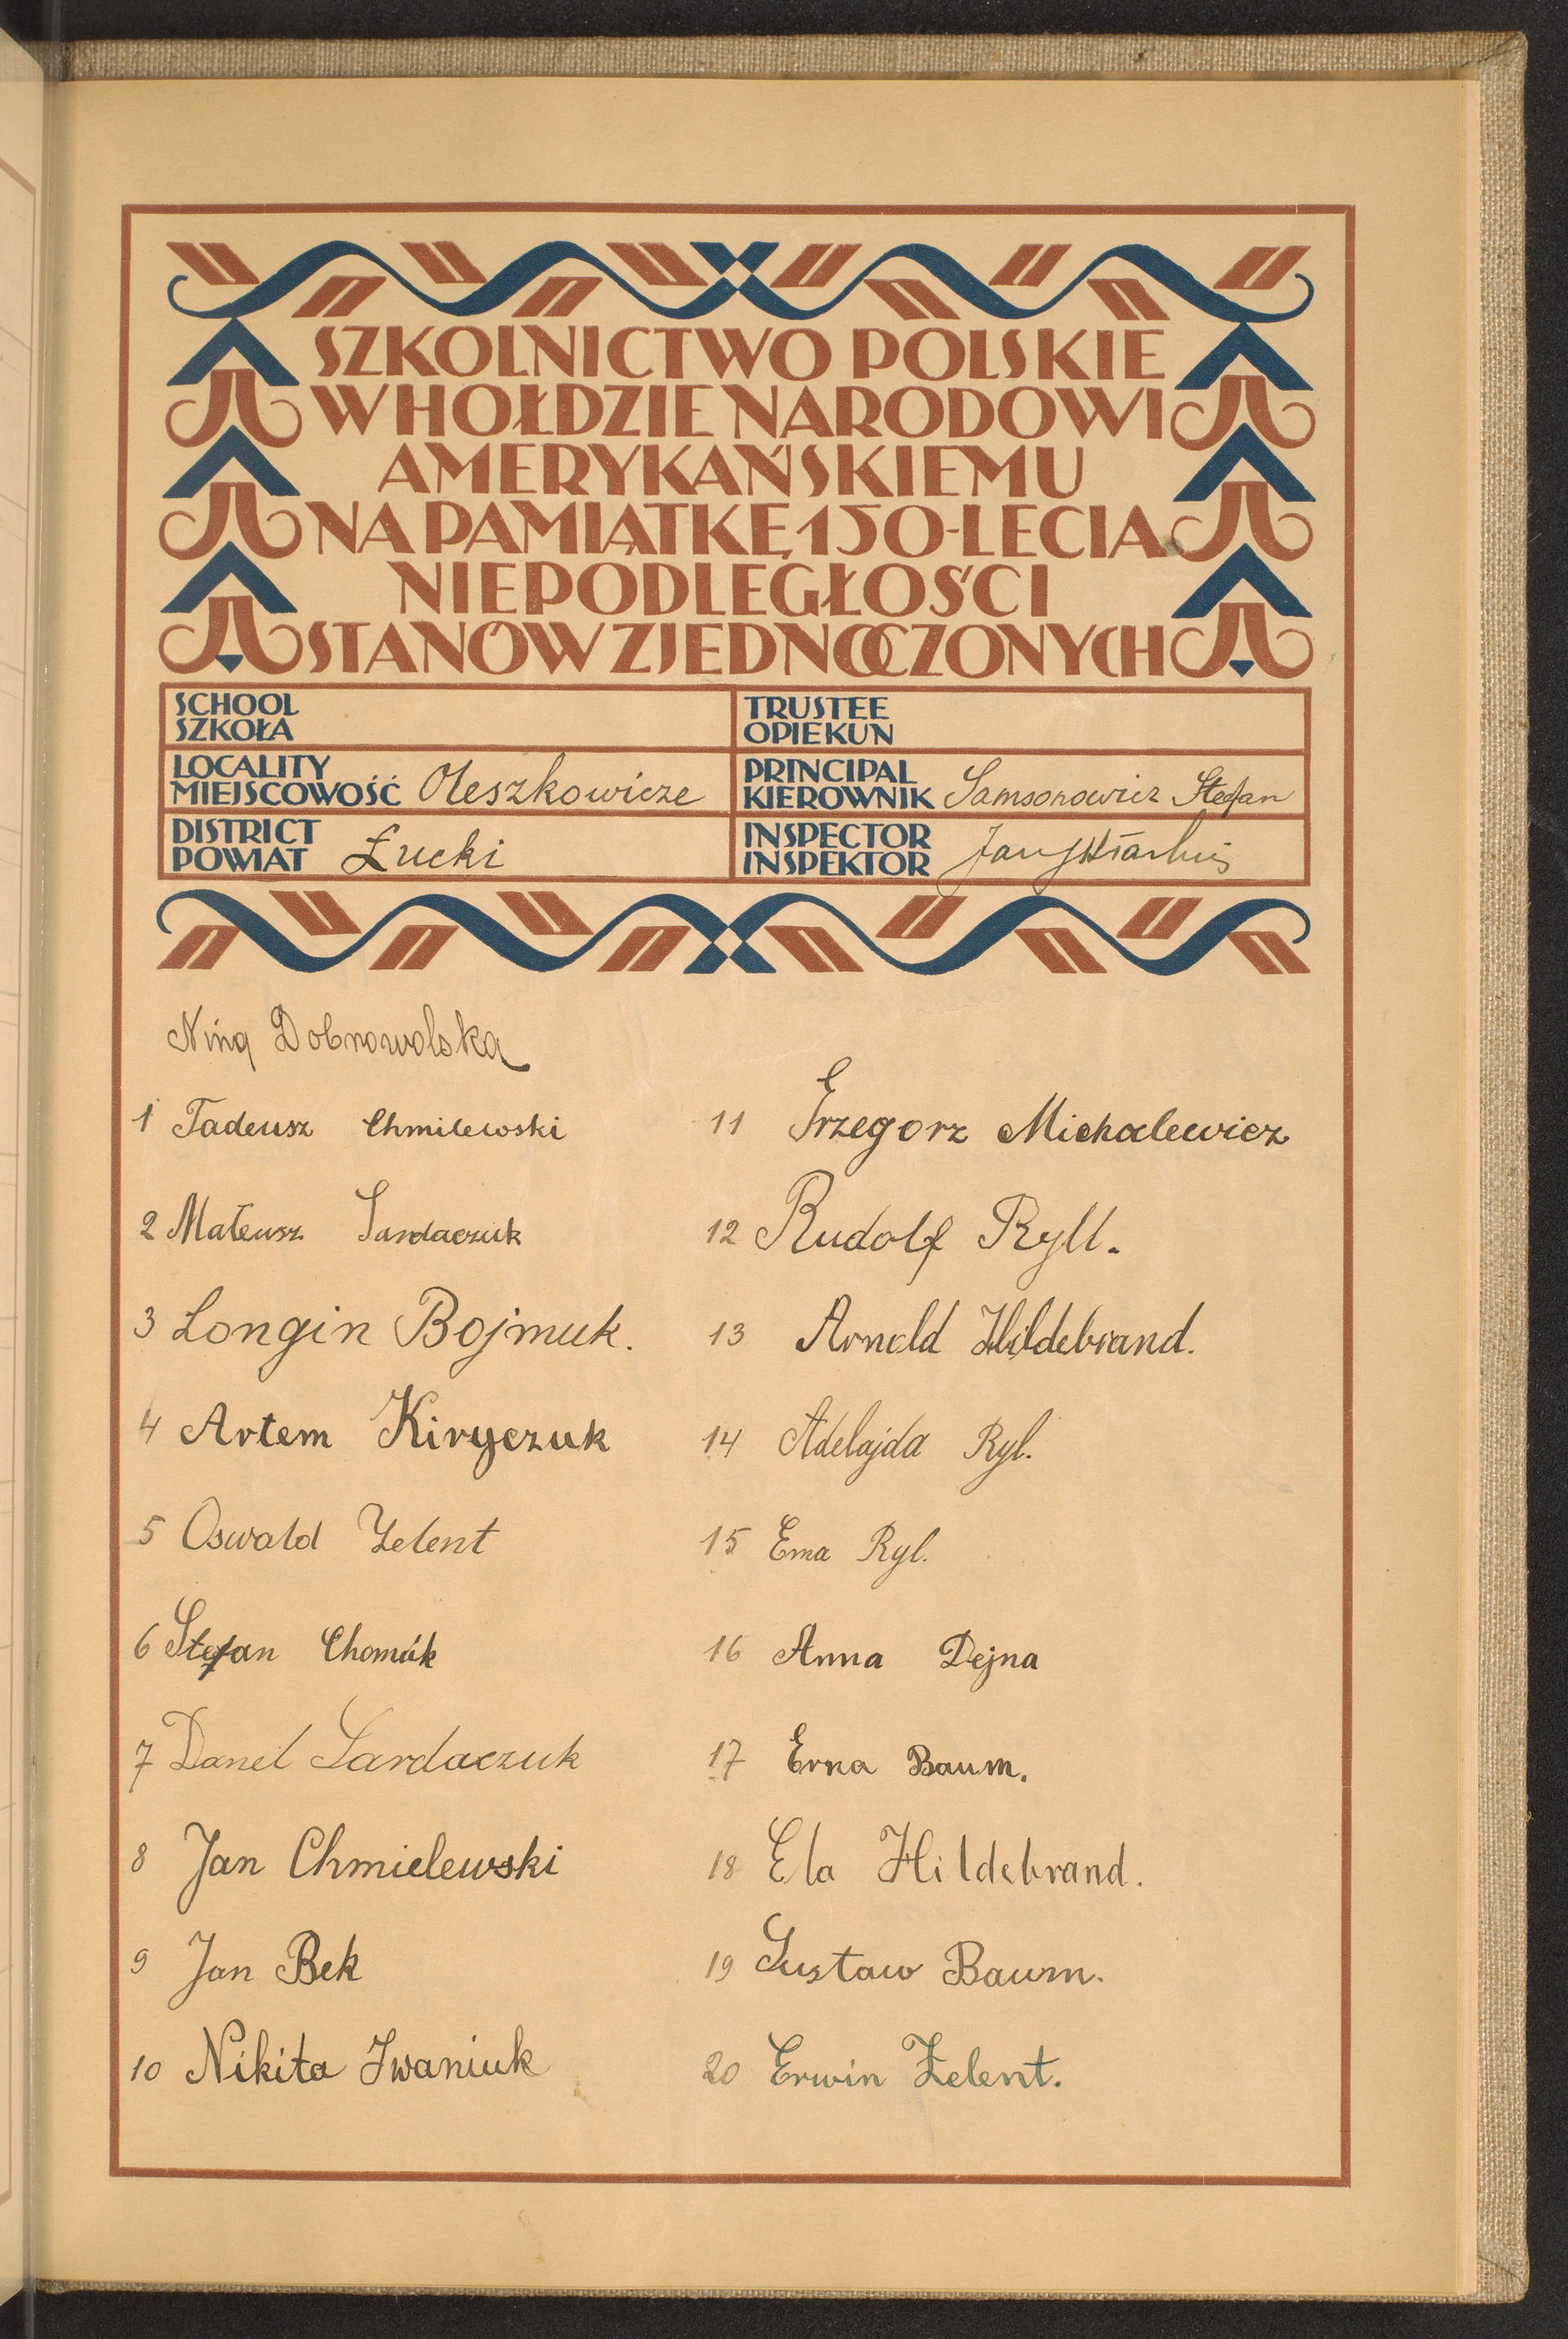 SZKOLNICTWO POLSKIE
W HOŁDZIE NARODOWI
AMERYKAŃSKIEMU
NA PAMIĄTKĘ 150-LECIA
NIEPODLEGŁOŚCI
STANÓW ZJEDNOCZONYCH
SCHOOL
SZKOŁA
TRUSTEE
OPIEKUN
LOCALITY
MIEJSCOWOŚĆ Oleszkowicze
PRINCIPAL
KIEROWNIK Samsonowicz Stefan
DISTRICT
POWIAT Łucki
INSPECTOR
INSPEKTOR Jan
Nina Dobrowolska
1 Tadeusz Chmilewski
2 Mateusz Sardaczuk
3 Longin Bojmuk.
4 Artem Kiryczuk
5 Oswald Zelent
6 Stefan Chomák
7 Danel Sardaczuk
8 Jan Chmielewski
9 Jan Bek
10 Nikita Iwaniuk
11 Grzegorz Michalewicz
12 Rudolf Ryll.
13 Arnold Hildebrand.
14 Adelajda Ryl.
15 Ema Ryl.
16 Anna Dejna
17 Erna Baum.
18 Ela Hildebrand.
19 Gustaw Baum.
20 Erwin Zelent.